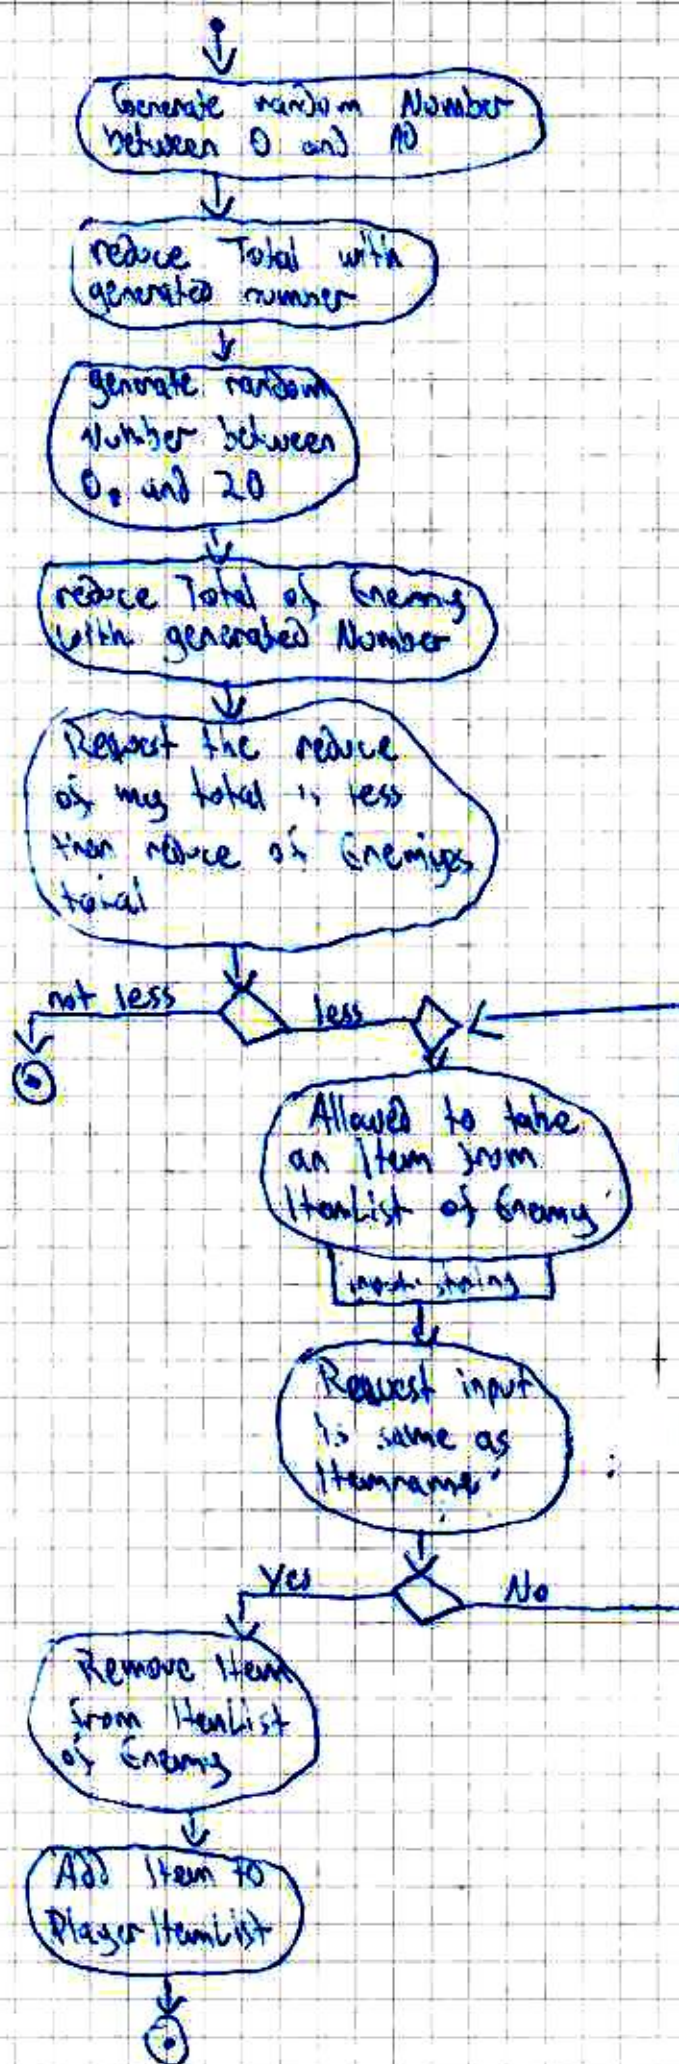 Generate random Number
between 0 and 10
reduce Total with
generated numner
generate random
Number between
0. and 20
reduce Total of Enemy
with generated Number
Request the reduce
of my total is less
than reduce of Enemyes
total
not less
less
Allowed to take
an Item from
ItemList of Enemy
input: string
Request input
is same as
Itemname
Yes
No
Remove Item
from ItemList
of Enemy
Add Item to
PlayerItemList